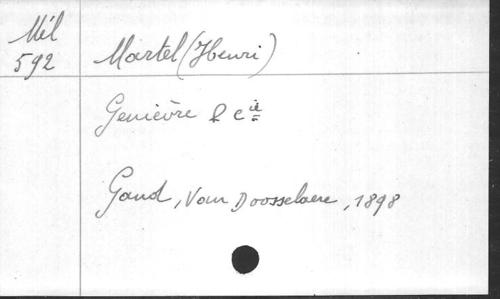 Mél
592
Martel (Henri)
Genièvre & Cie
Gand, Van Doosselaere, 1898